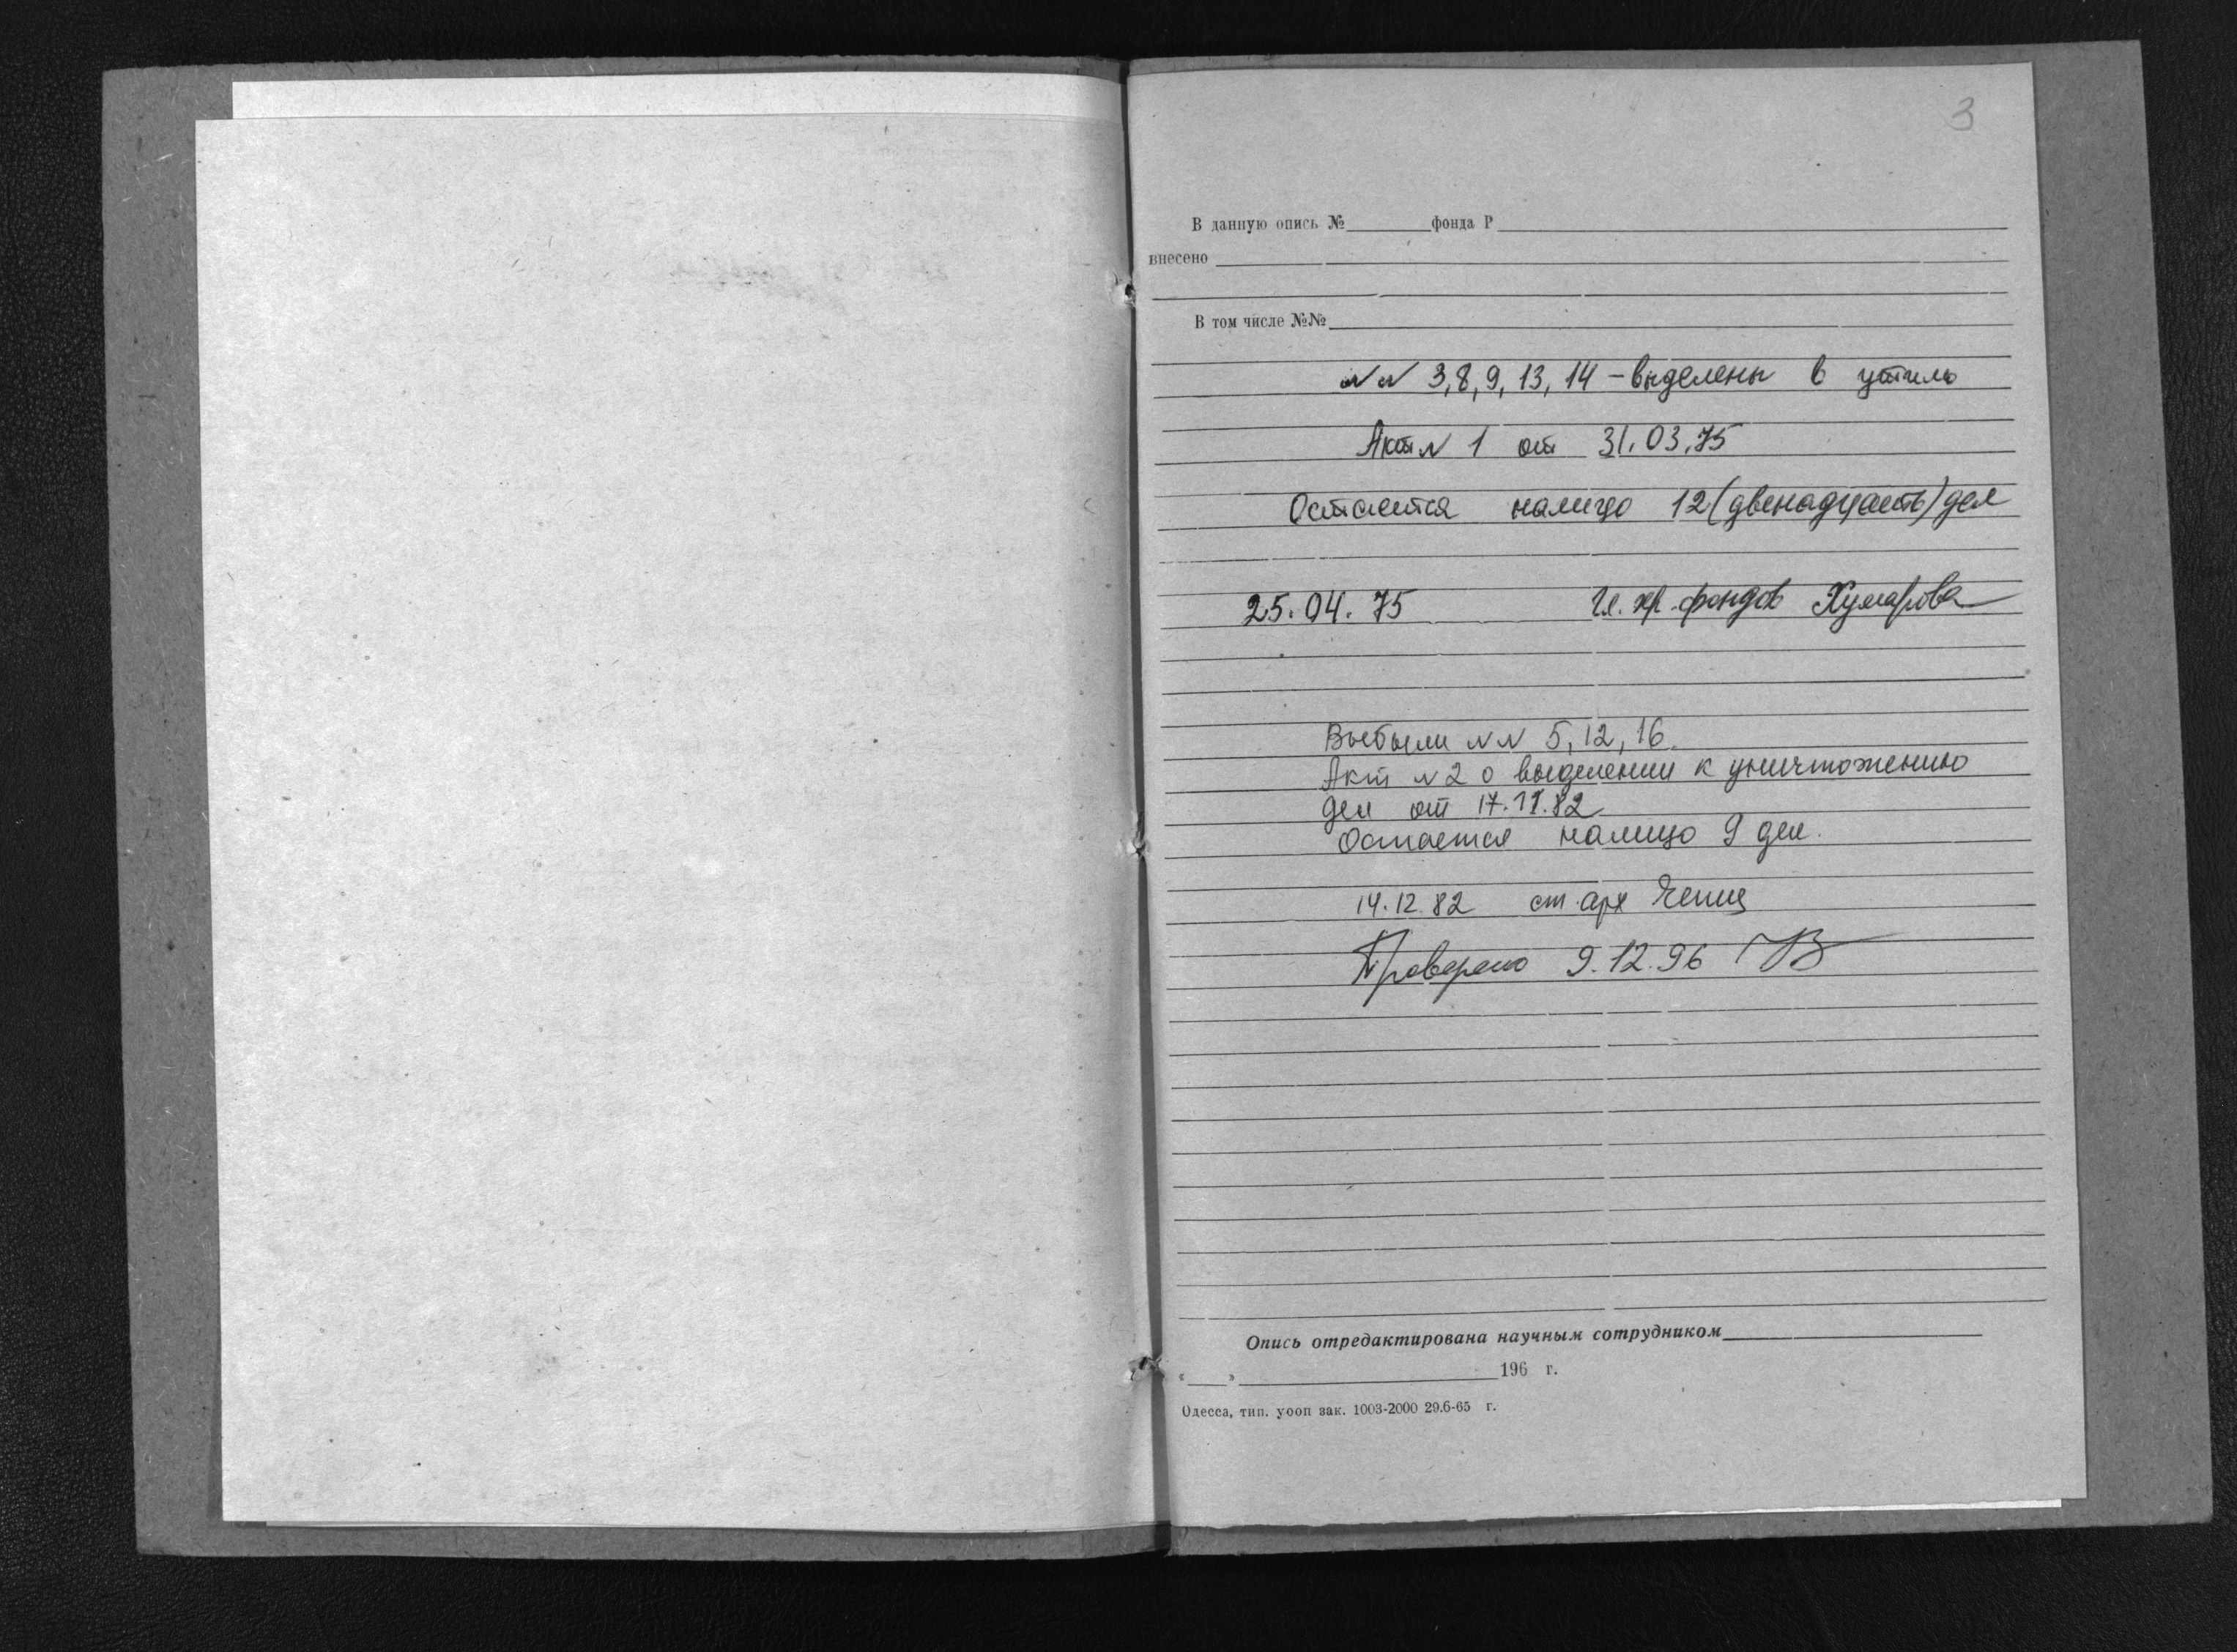 3
В данную опись № фонда Р
внесено
В том числе №№
NN 3, 8, 9, 13, 14 – выделены в утиль
Акт N 1 от 31.03.75
Остается налицо 12 (двенадцать) дел
25.04.75 Гл. хр. фондов Хумарова
Выбыли NN 5, 12, 16.
Акт N 2 о выделении к уничтожению
дел от 17.11.82
Остается налицо 9 дел.
14.12.82 ст. арх
Проверено 9.12.96
Опись отредактирована научным сотрудником
« » 196 г.
Одесса, тип. уооп зак. 1003-2000 29.6-65 г.